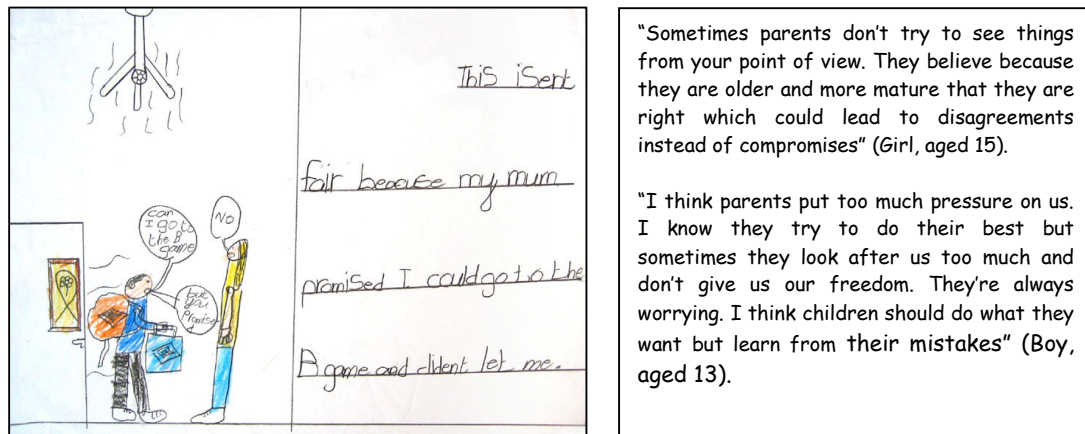 can
I go to
the B
game
NO
but
you
Promised
This isent
fair because my mum
promised I could go to the
B game and dident let me.
“Sometimes parents don’t try to see things
from your point of view. They believe because
they are older and more mature that they are
right which could lead to disagreements
instead of compromises” (Girl, aged 15).
“I think parents put too much pressure on us.
I know they try to do their best but
sometimes they look after us too much and
don’t give us our freedom. They’re always
worrying. I think children should do what they
want but learn from their mistakes” (Boy,
aged 13).